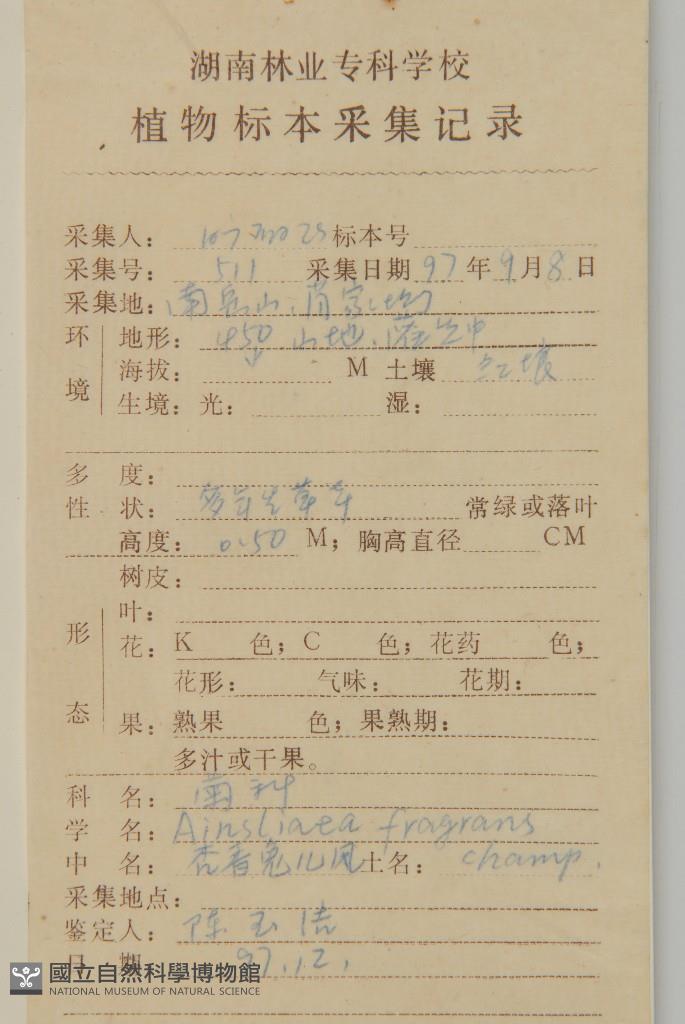 湖南林业专科学校
植物标本采集记录
采集人： 标本号
采集号： 511 采集日期 97 年 9 月 8 日
采集地： 南岳山
环境 地形： 450 山地
海拔： M 土壤 红壤
生境：光： 湿：
多 度：
性 状： 多年生草本 常绿或落叶
高度： 0.50 M；胸高直径 CM
形态 树皮：
叶：
花：K 色；C 色；花药 色；
花形： 气味： 花期：
果：熟果 色；果熟期：
多汁或干果。
科 名： 菊科
学 名： Ainsliaea fragrans
中 名： 杏香兔儿风 土名： champ.
采集地点：
鉴定人： 陈玉洁
日 期 97.12.
國立自然科學博物館
NATIONAL MUSEUM OF NATURAL SCIENCE